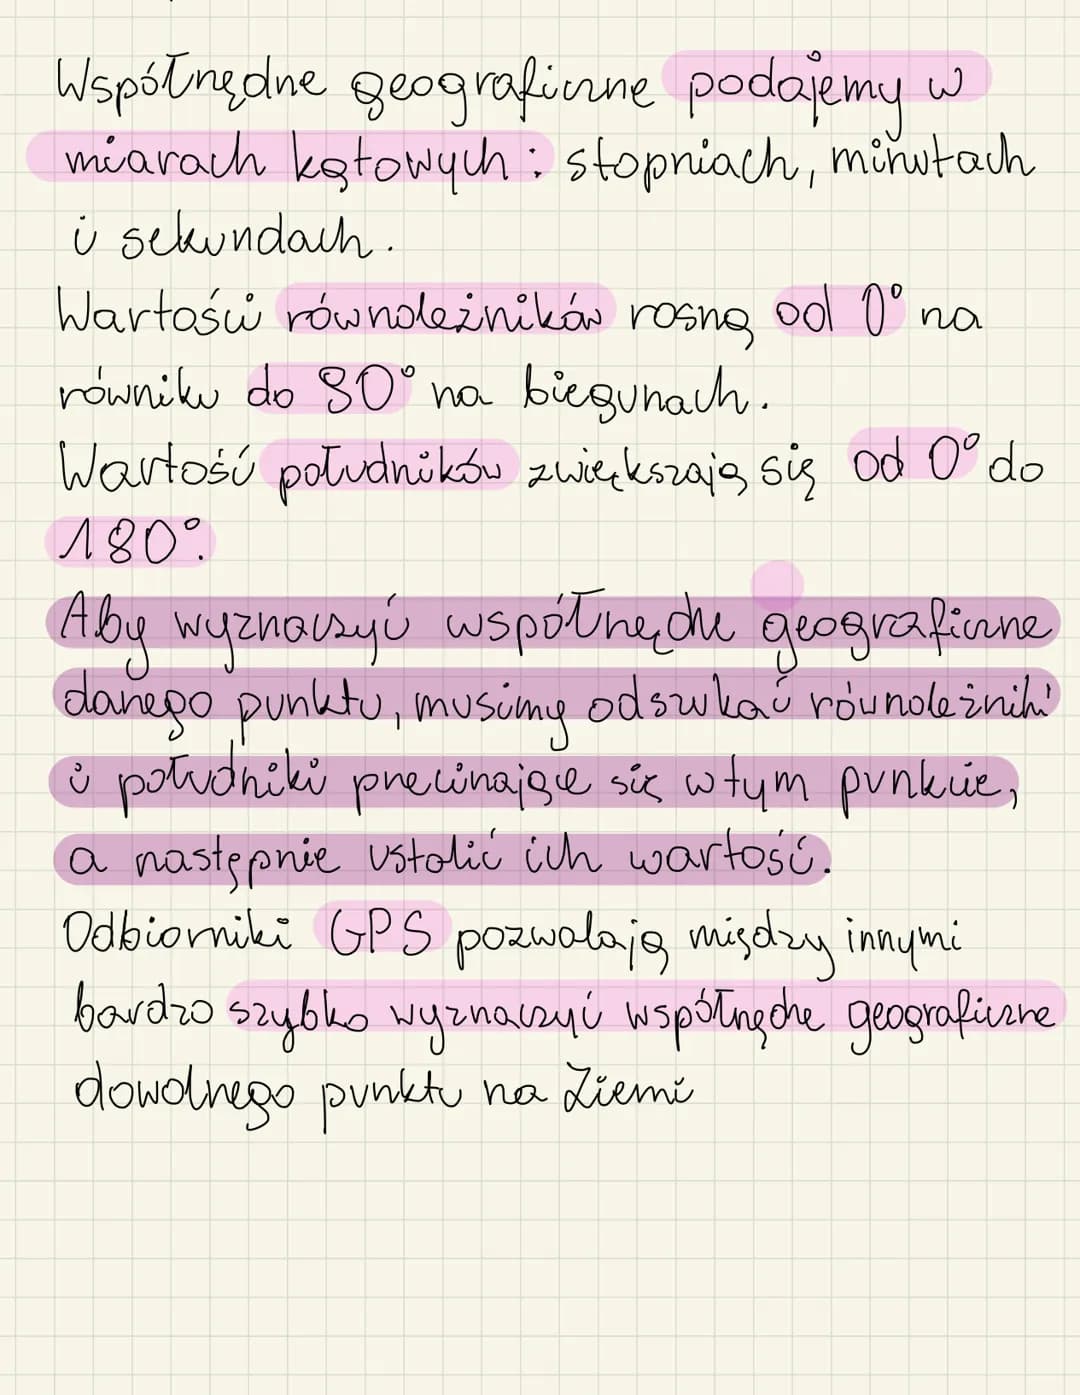 Współrzędne geograficzne podajemy w
miarach kątowych: stopniach, minutach
i sekundach.
Wartości równoleżników rosną od 0° na
równiku do 90° na biegunach.
Wartość południków zwiększają się od 0° do
180°.
Aby wyznaczyć współrzędne geograficzne
danego punktu, musimy odszukać równoleżniki
i południki przecinające się w tym punkcie,
a następnie ustalić ich wartość.
Odbiorniki GPS pozwalają między innymi
bardzo szybko wyznaczyć współrzędne geograficzne
dowolnego punktu na Ziemi